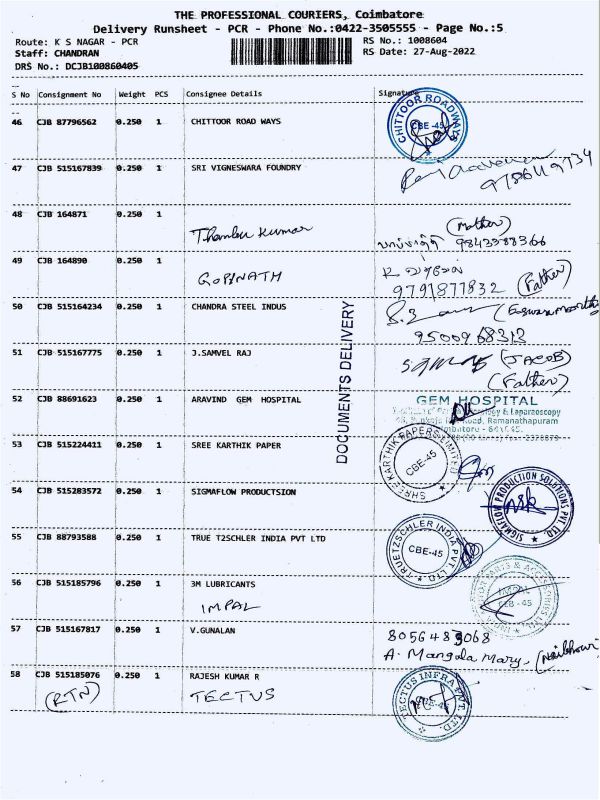 THE PROFESSIONAL COURIERS, Coimbatore
Delivery Runsheet - PCR - Phone No.:0422-3505555 - Page No.:5
Route: K S NAGAR - PCR RS No.: 1008604
Staff: CHANDRAN RS Date: 27-Aug-2022
DRS No.: DCJB100860405
S No Consignment No Weight PCS Consignee Details Signature
46 CJB 87796562 0.250 1 CHITTOOR ROAD WAYS
CHITTOOR ROADWAYS CBE-45
47 CJB 515167839 0.250 1 SRI VIGNESWARA FOUNDRY
48 CJB 164871 0.250 1 (Mother)
Kumar 9843388366
49 CJB 164890 0.250 1
GOPINATH 9791877832 (Father)
50 CJB 515164234 0.250 1 CHANDRA STEEL INDUS
9500968313
51 CJB 515167775 0.250 1 J.SAMVEL RAJ (JACOB)
(Father)
DOCUMENTS DELIVERY
52 CJB 88691623 0.250 1 ARAVIND GEM HOSPITAL GEM HOSPITAL
& Laparoscopy
Road, Ramanathapuram
53 CJB 515224411 0.250 1 SREE KARTHIK PAPER
SHREE KARTHIK PAPERS LIMITED CBE-45
54 CJB 515283572 0.250 1 SIGMAFLOW PRODUCTSION
SIGMAFLOW PRODUCTION SOLUTIONS PVT LTD
55 CJB 88793588 0.250 1 TRUE T2SCHLER INDIA PVT LTD
TRUETZSCHLER INDIA PVT. LTD. CBE-45
56 CJB 515185796 0.250 1 3M LUBRICANTS
IMPAL IMPAL
57 CJB 515167817 0.250 1 V.GUNALAN 8056483068
A. Mangala Mary
58 CJB 515185076 0.250 1 RAJESH KUMAR R
(RTN) TECTUS
TECTUS INFRA ENT. LTD.